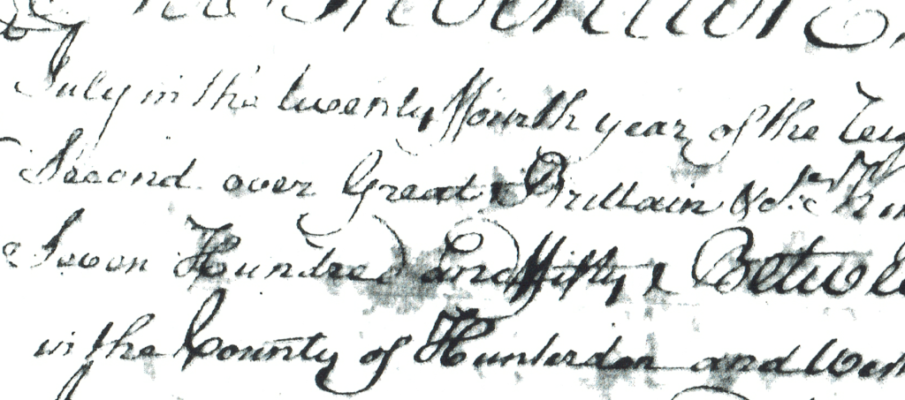 July in the twenty ffourth year of the Reig
Second over Great Brittain &c
Seven Hundred and ffifty Betwee
in the County of Hunterdon and Wes